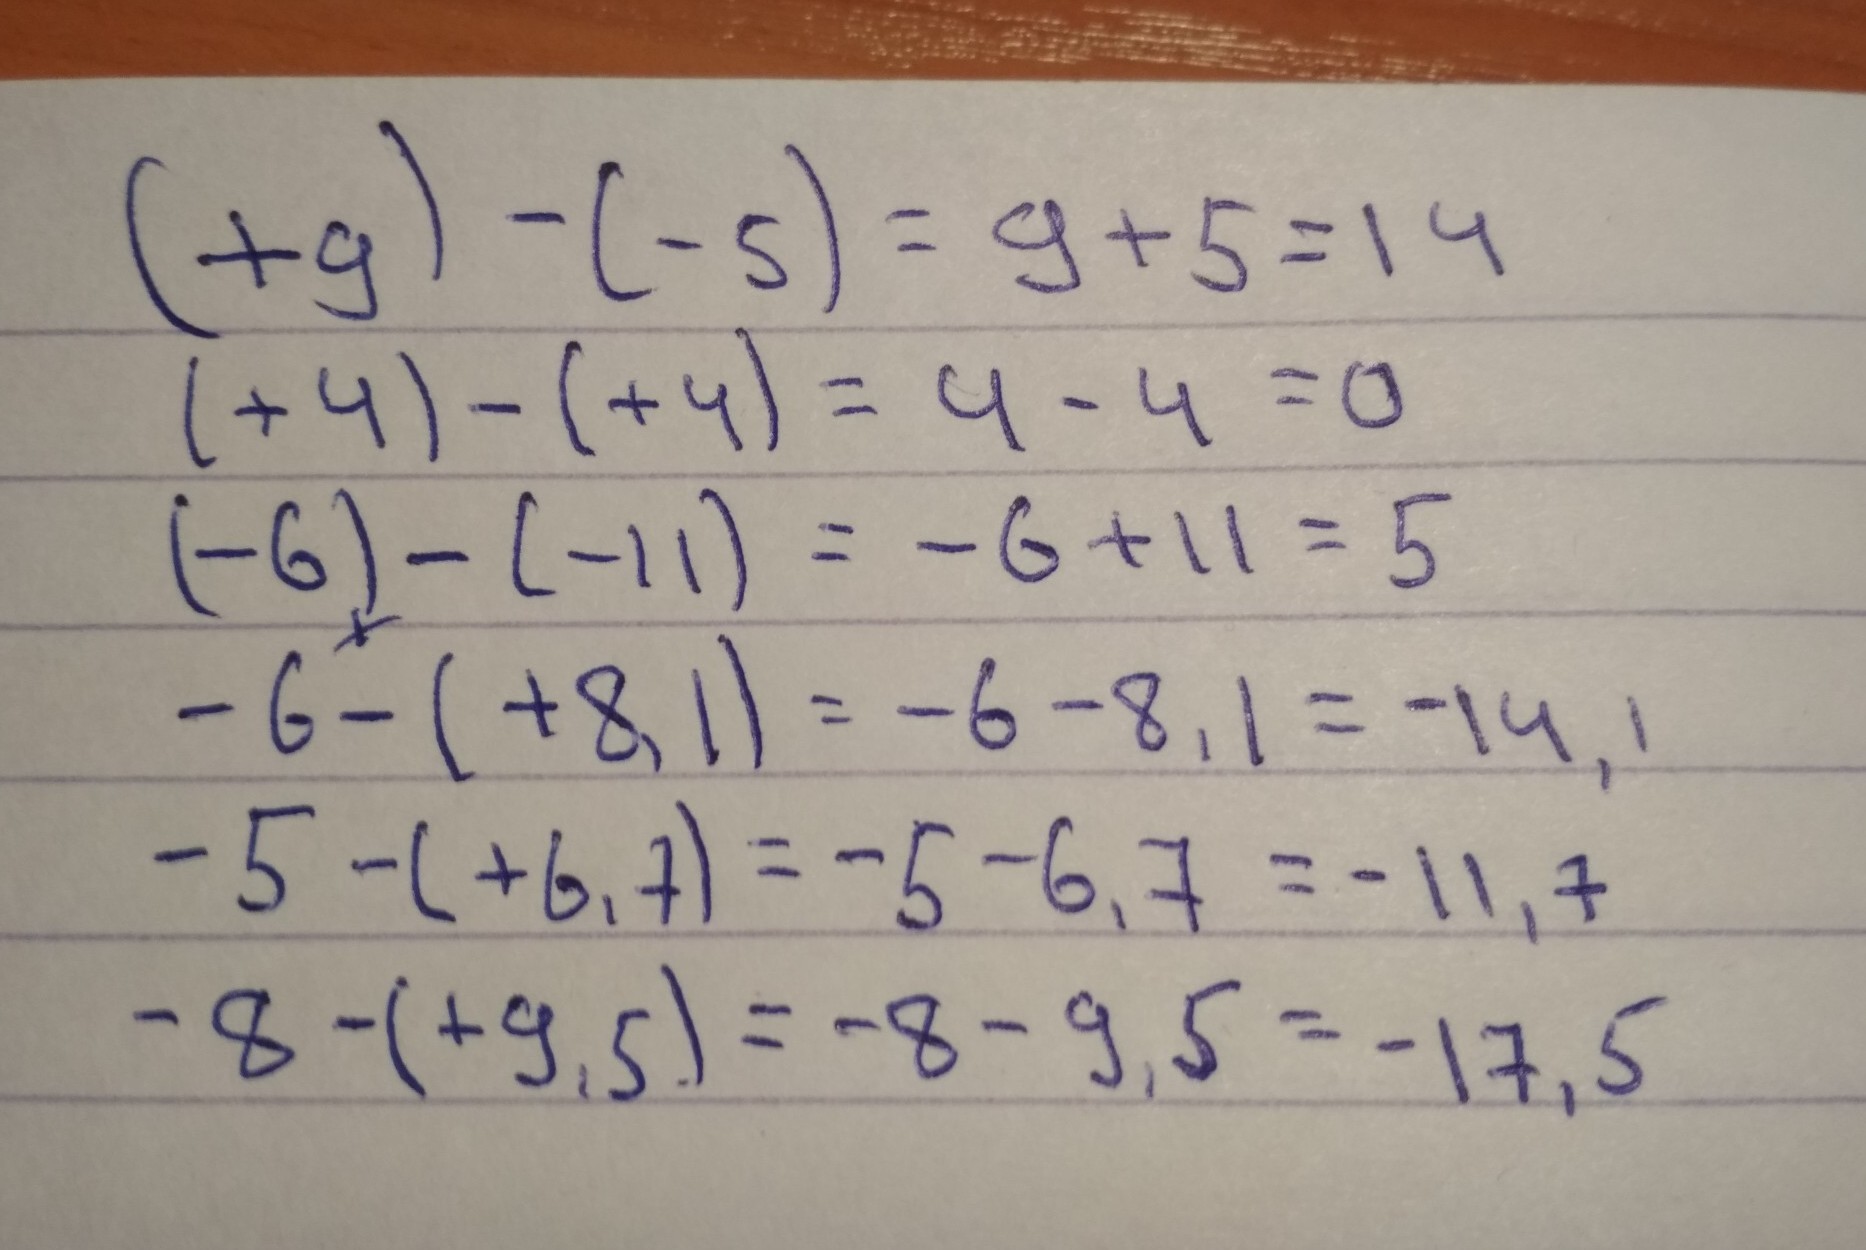 (+9) - (-5) = 9+5=14
(+4) - (+4) = 4 - 4 = 0
(-6) - (-11) = -6+11=5
-6-(+8,1) = -6-8,1 = -14,1
-5-(+6,7) = -5-6,7 = -11,7
-8-(+9,5) = -8-9,5 = -17,5